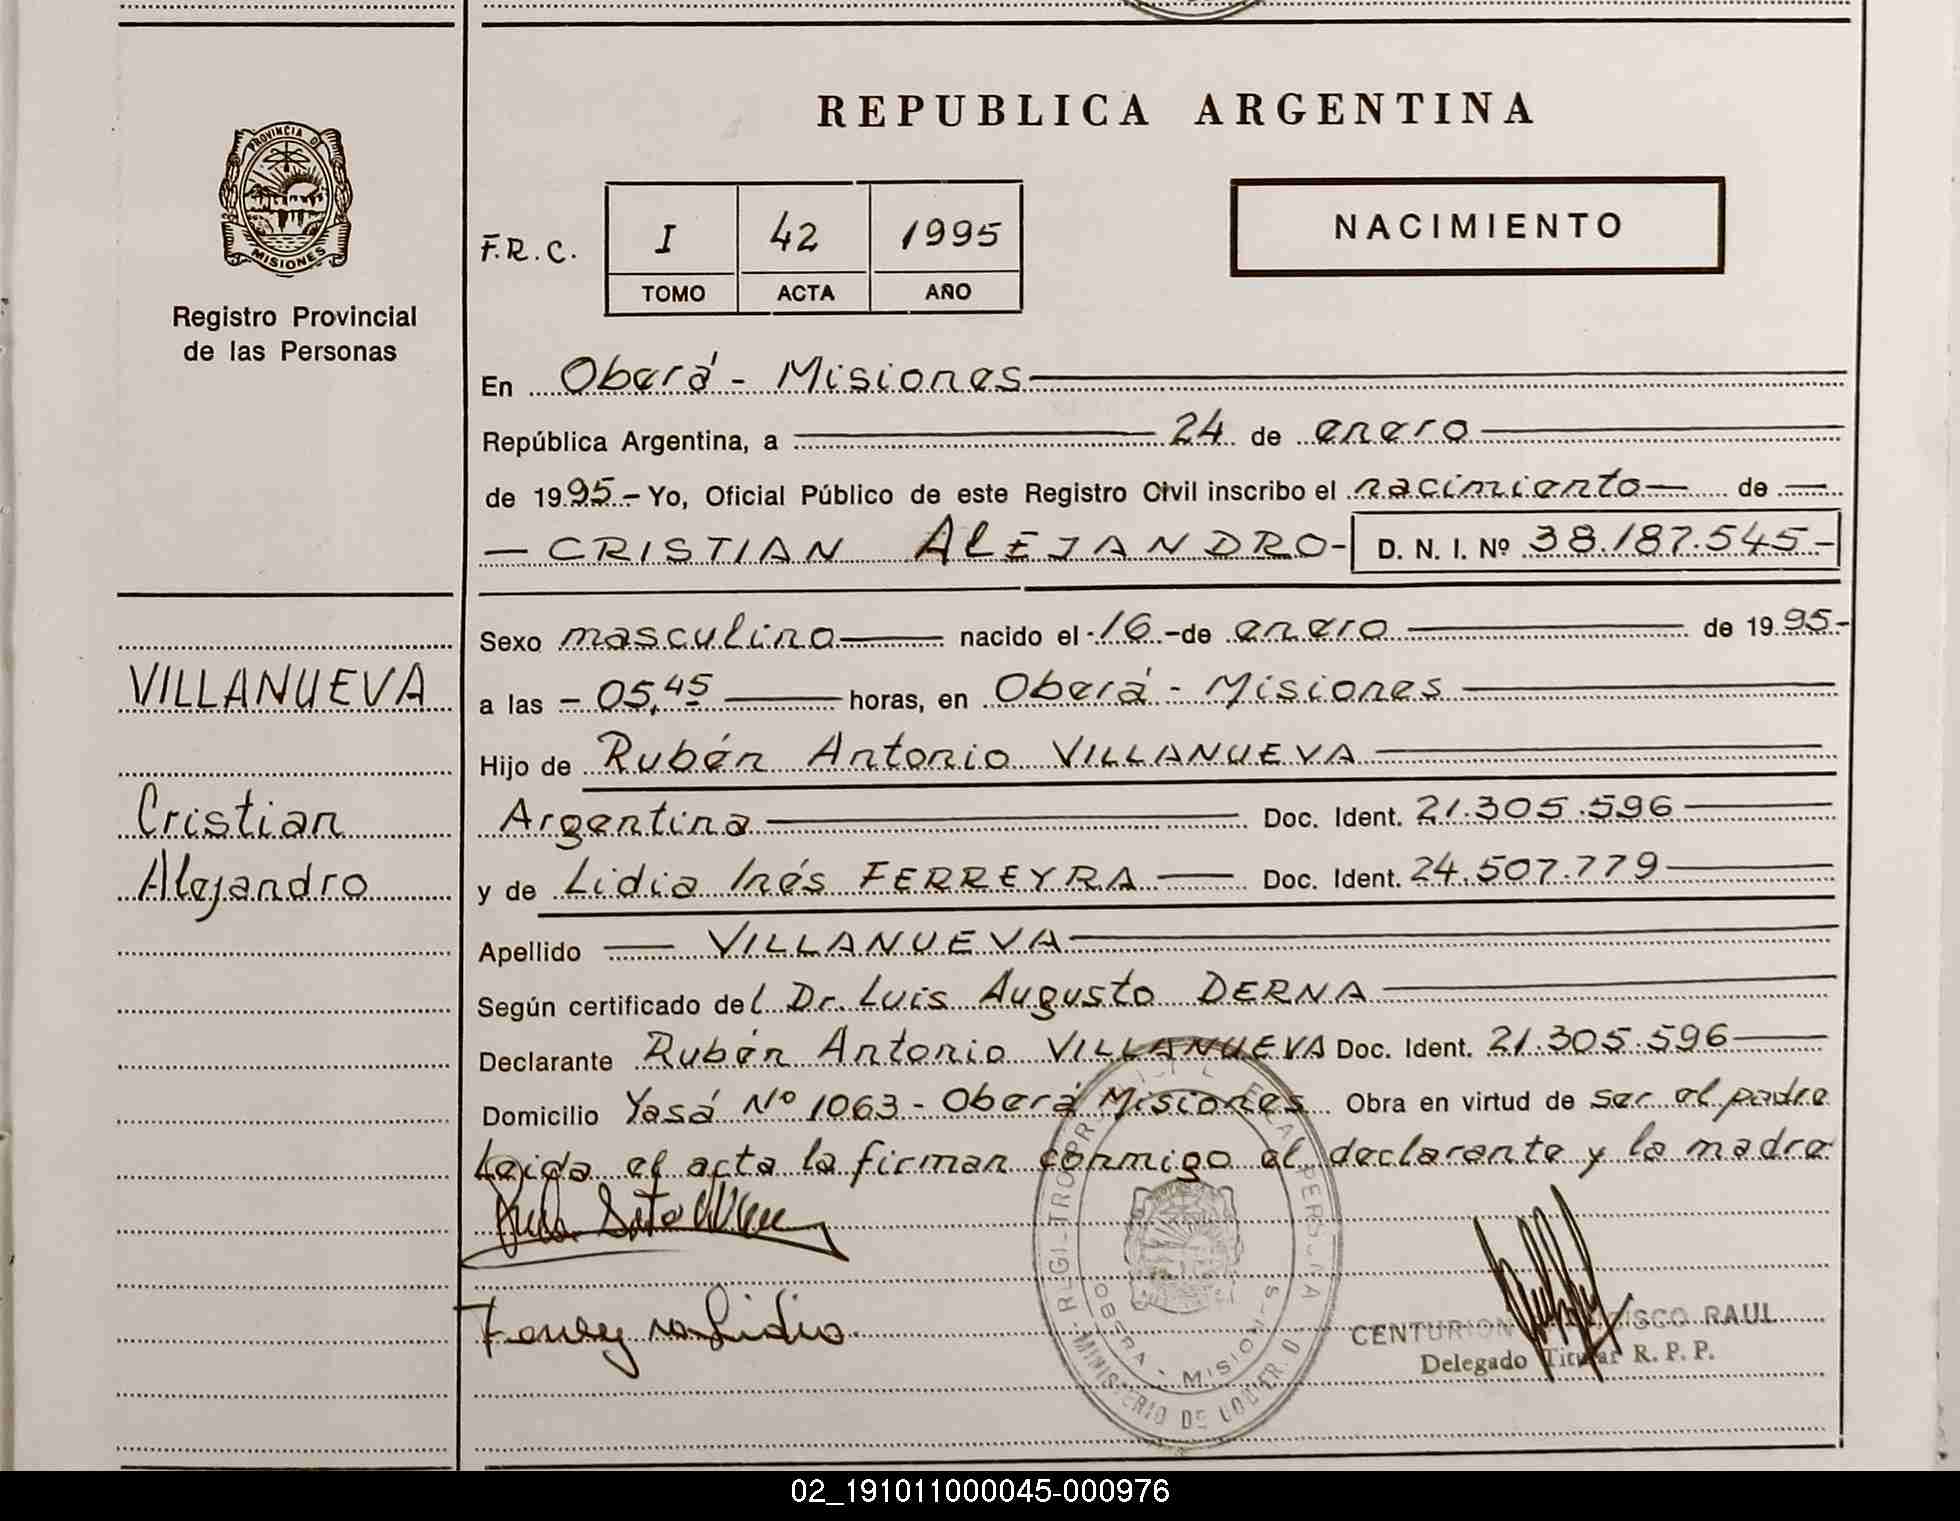 REPUBLICA ARGENTINA
PROVINCIA DE
MISIONES
Registro Provincial
de las Personas
F.R.C.
I 42 1995
TOMO ACTA AÑO
NACIMIENTO
En Oberá - Misiones
República Argentina, a 24 de enero
de 1995.- Yo, Oficial Público de este Registro Civil inscribo el nacimiento de
CRISTIAN ALEJANDRO- D. N. I. Nº 38.187.545-
VILLANUEVA
Cristian
Alejandro
Sexo masculino nacido el 16 -de enero de 1995-
a las - 05,45 horas, en Oberá - Misiones
Hijo de Rubén Antonio VILLANUEVA
Argentina Doc. Ident. 21.305.596
y de Lidia Inés FERREYRA Doc. Ident. 24.507.779
Apellido VILLANUEVA
Según certificado del Dr. Luis Augusto DERNA
Declarante Rubén Antonio VILLANUEVA Doc. Ident. 21.305.596
Domicilio Yasá Nº 1063 - Oberá Misiones Obra en virtud de ser el padre
Leida el acta la firman conmigo el declarante y la madre
Lidia
OBERA - MISIONES
MINISTERIO DE
CENTURION RAUL
Delegado Titular R. P. P.
02_191011000045-000976